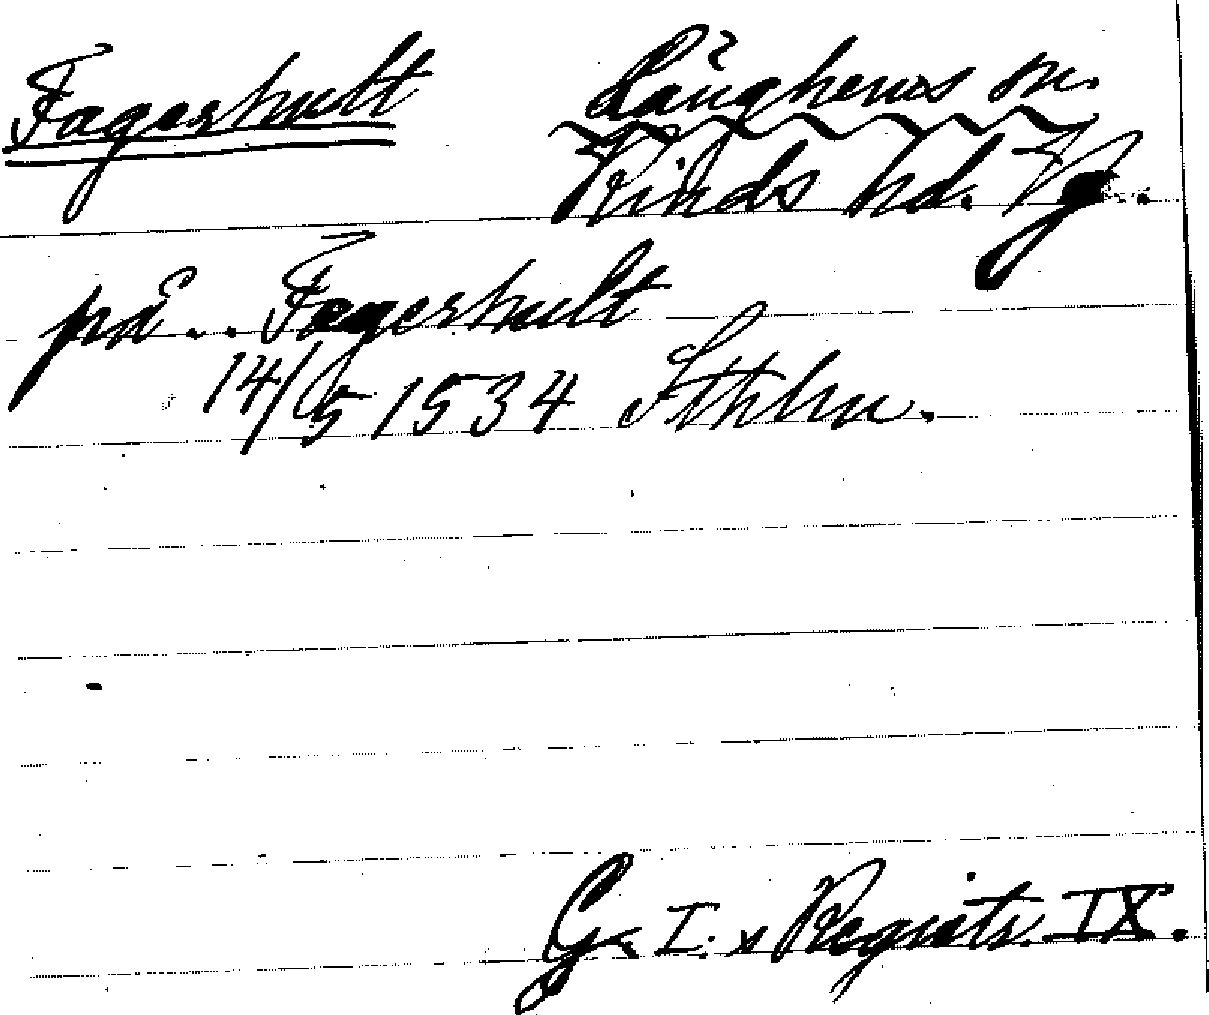 Fagerhult Långhems sn.
Kinds hd. Vg.
på... Fagerhult
14/5 1534 Sthlm.
G. I:s Registr. IX.